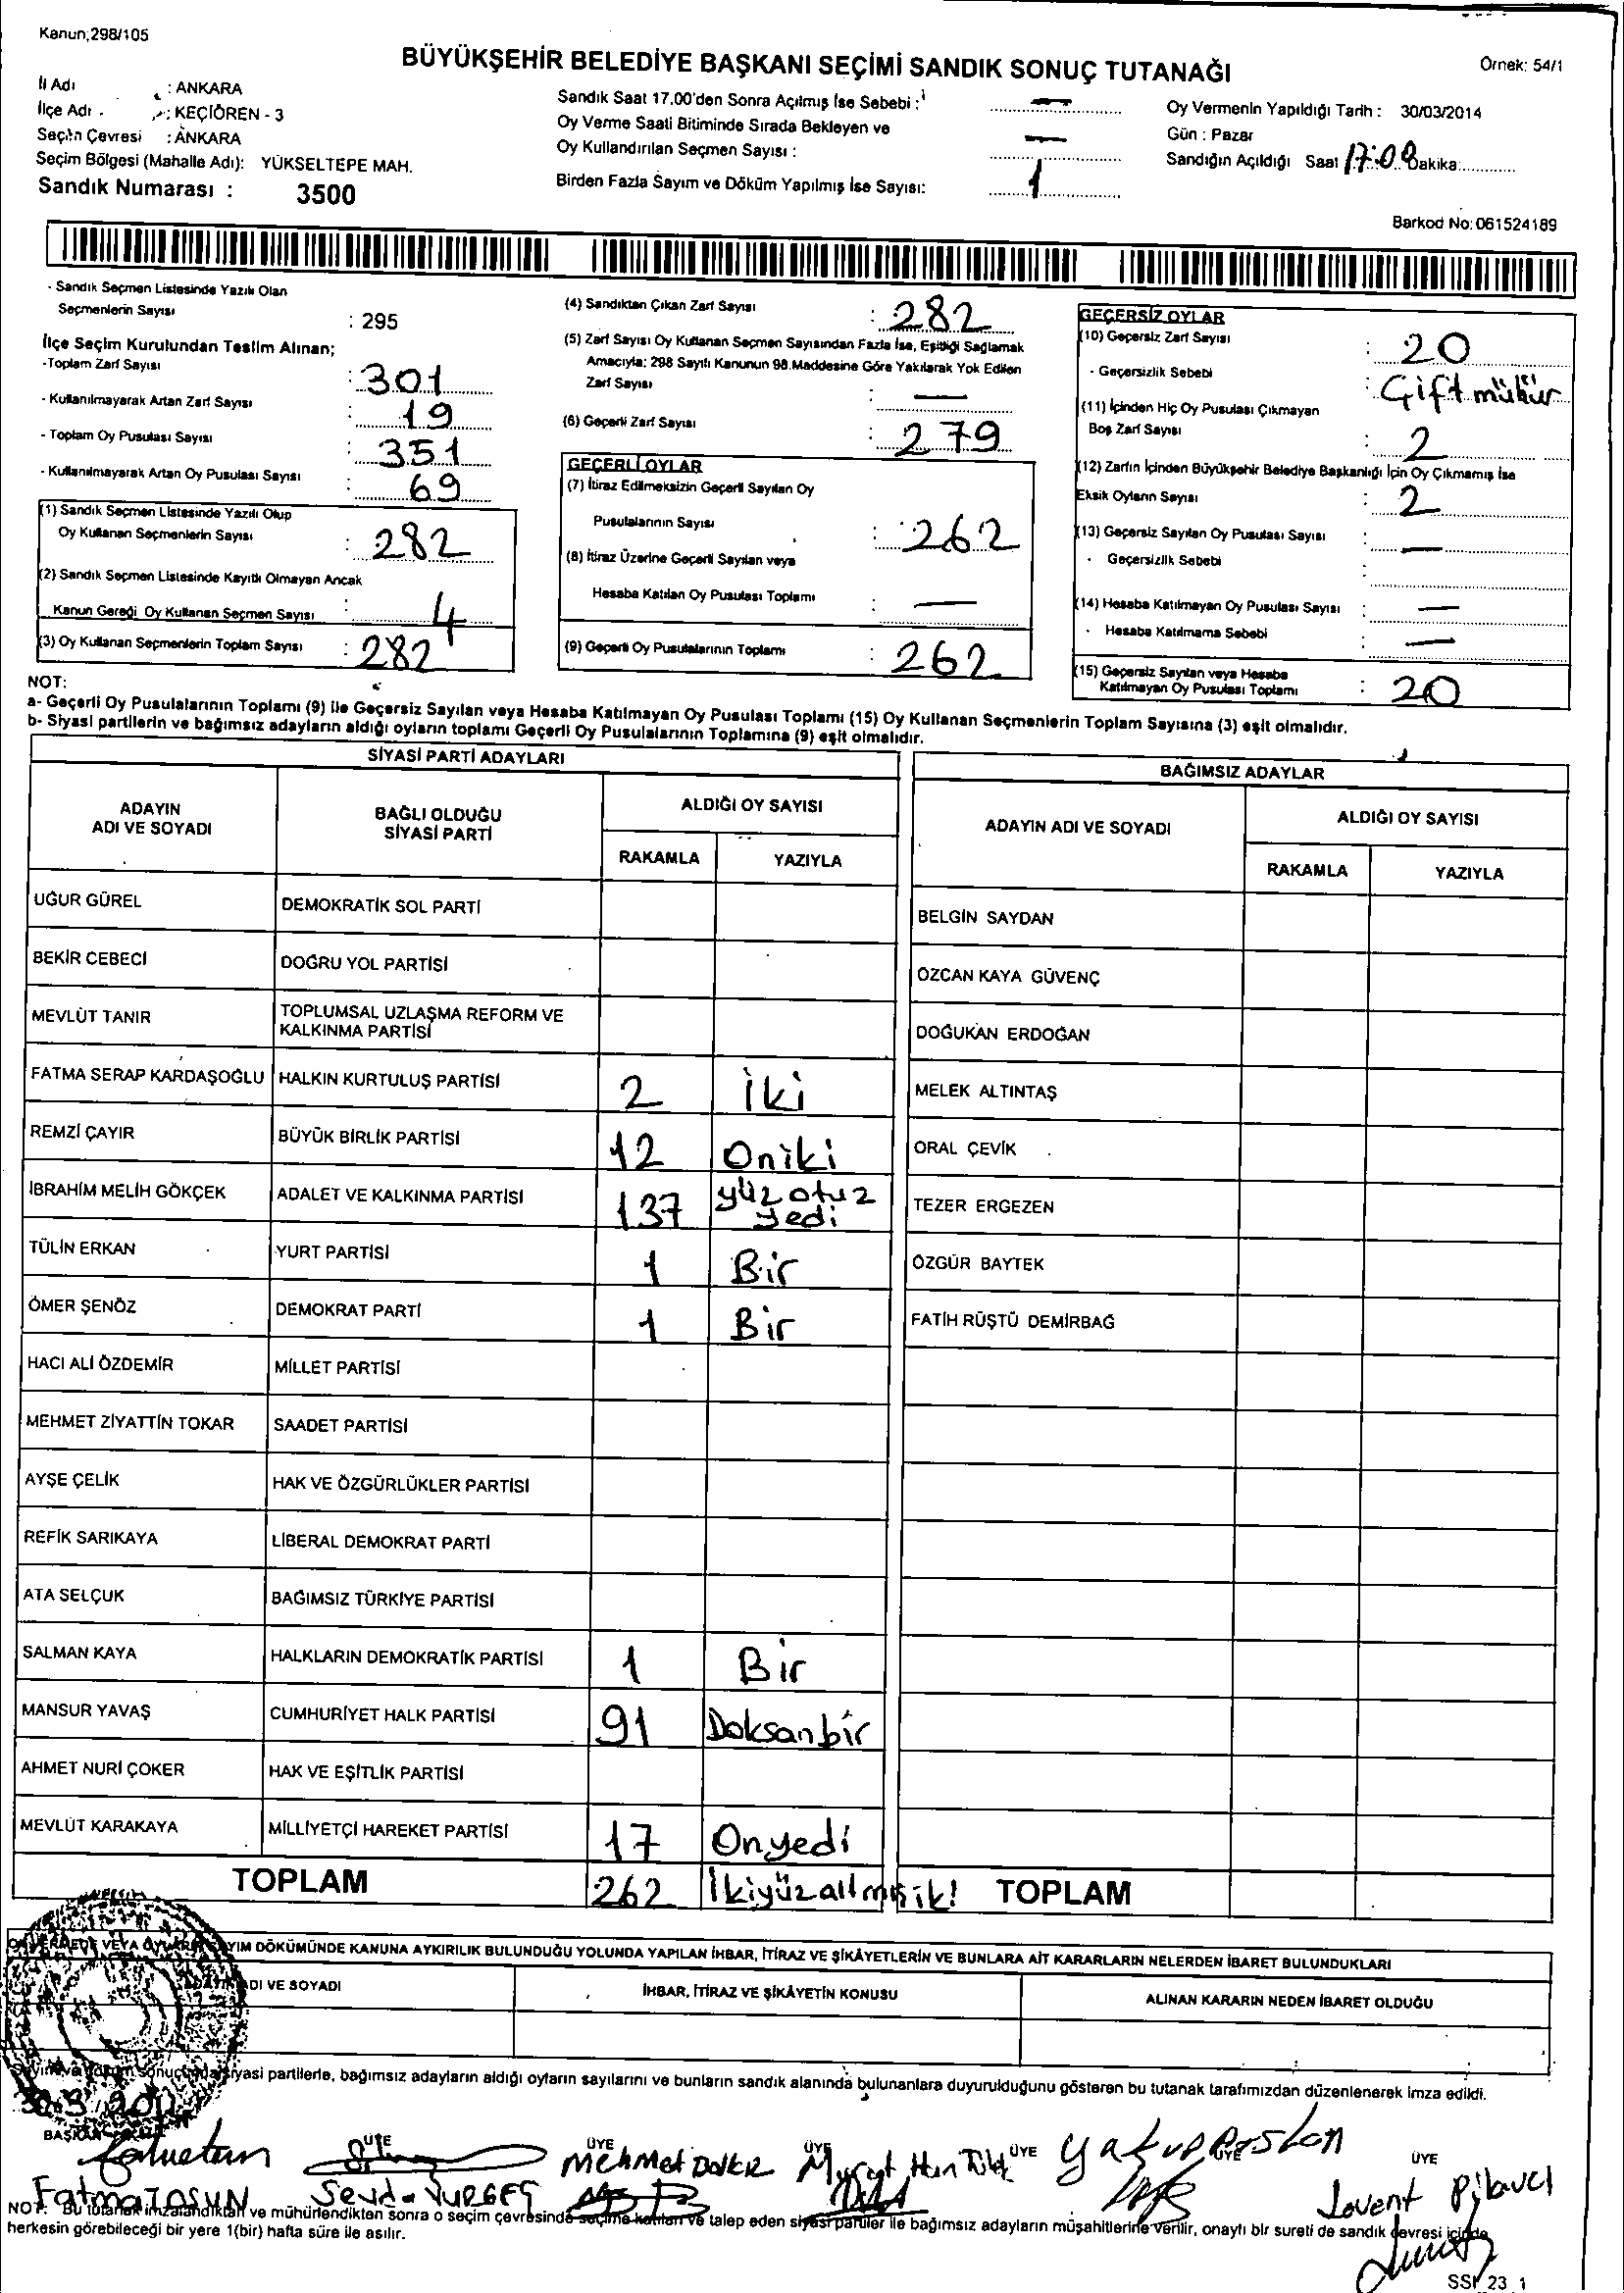 Kanun;298/105
BÜYÜKŞEHİR BELEDİYE BAŞKANI SEÇİMİ SANDIK SONUÇ TUTANAĞI
Örnek: 54/1
İl Adı : ANKARA
İlçe Adı : KEÇİÖREN - 3
Seçim Çevresi : ANKARA
Seçim Bölgesi (Mahalle Adı): YÜKSELTEPE MAH.
Sandık Numarası : 3500
Sandık Saat 17.00'den Sonra Açılmış İse Sebebi : —
Oy Verme Saati Bitiminde Sırada Bekleyen ve
Oy Kullandırılan Seçmen Sayısı : —
Birden Fazla Sayım ve Döküm Yapılmış İse Sayısı: 1
Oy Vermenin Yapıldığı Tarih : 30/03/2014
Gün : Pazar
Sandığın Açıldığı Saat 17:00 Dakika:
Barkod No: 061524189
- Sandık Seçmen Listesinde Yazılı Olan
Seçmenlerin Sayısı : 295
İlçe Seçim Kurulundan Teslim Alınan;
-Toplam Zarf Sayısı : 301
- Kullanılmayarak Artan Zarf Sayısı : 19
- Toplam Oy Pusulası Sayısı : 351
- Kullanılmayarak Artan Oy Pusulası Sayısı : 69
(1) Sandık Seçmen Listesinde Yazılı Olup
Oy Kullanan Seçmenlerin Sayısı : 282
(2) Sandık Seçmen Listesinde Kayıtlı Olmayan Ancak
Kanun Gereği Oy Kullanan Seçmen Sayısı : 4
(3) Oy Kullanan Seçmenlerin Toplam Sayısı : 282
(4) Sandıktan Çıkan Zarf Sayısı : 282
(5) Zarf Sayısı Oy Kullanan Seçmen Sayısından Fazla İse, Eşitliği Sağlamak
Amacıyla; 298 Sayılı Kanunun 98.Maddesine Göre Yakılarak Yok Edilen
Zarf Sayısı : —
(6) Geçerli Zarf Sayısı : 279
GEÇERLİ OYLAR
(7) İtiraz Edilmeksizin Geçerli Sayılan Oy
Pusulalarının Sayısı : 262
(8) İtiraz Üzerine Geçerli Sayılan veya
Hesaba Katılan Oy Pusulası Toplamı : —
(9) Geçerli Oy Pusulalarının Toplamı : 262
GEÇERSİZ OYLAR
(10) Geçersiz Zarf Sayısı : 20
- Geçersizlik Sebebi : Çift mühür
(11) İçinden Hiç Oy Pusulası Çıkmayan
Boş Zarf Sayısı : 2
(12) Zarfın İçinden Büyükşehir Belediye Başkanlığı İçin Oy Çıkmamış İse
Eksik Oyların Sayısı : 2
(13) Geçersiz Sayılan Oy Pusulası Sayısı : —
- Geçersizlik Sebebi :
(14) Hesaba Katılmayan Oy Pusulası Sayısı : —
- Hesaba Katılmama Sebebi : —
(15) Geçersiz Sayılan veya Hesaba
Katılmayan Oy Pusulası Toplamı : 20
NOT:
a- Geçerli Oy Pusulalarının Toplamı (9) ile Geçersiz Sayılan veya Hesaba Katılmayan Oy Pusulası Toplamı (15) Oy Kullanan Seçmenlerin Toplam Sayısına (3) eşit olmalıdır.
b- Siyasi partilerin ve bağımsız adayların aldığı oyların toplamı Geçerli Oy Pusulalarının Toplamına (9) eşit olmalıdır.
SİYASİ PARTİ ADAYLARI
ADAYIN ADI VE SOYADI
BAĞLI OLDUĞU SİYASİ PARTİ
ALDIĞI OY SAYISI
RAKAMLA YAZIYLA
UĞUR GÜREL DEMOKRATİK SOL PARTİ
BEKİR CEBECİ DOĞRU YOL PARTİSİ
MEVLÜT TANIR TOPLUMSAL UZLAŞMA REFORM VE
KALKINMA PARTİSİ
FATMA SERAP KARDAŞOĞLU HALKIN KURTULUŞ PARTİSİ 2 İki
REMZİ ÇAYIR BÜYÜK BİRLİK PARTİSİ 12 Oniki
İBRAHİM MELİH GÖKÇEK ADALET VE KALKINMA PARTİSİ 137 yüz otuz
yedi
TÜLİN ERKAN YURT PARTİSİ 1 Bir
ÖMER ŞENÖZ DEMOKRAT PARTİ 1 Bir
HACI ALİ ÖZDEMİR MİLLET PARTİSİ
MEHMET ZİYATTİN TOKAR SAADET PARTİSİ
AYŞE ÇELİK HAK VE ÖZGÜRLÜKLER PARTİSİ
REFİK SARIKAYA LİBERAL DEMOKRAT PARTİ
ATA SELÇUK BAĞIMSIZ TÜRKİYE PARTİSİ
SALMAN KAYA HALKLARIN DEMOKRATİK PARTİSİ 1 Bir
MANSUR YAVAŞ CUMHURİYET HALK PARTİSİ 91 Doksanbir
AHMET NURİ ÇOKER HAK VE EŞİTLİK PARTİSİ
MEVLÜT KARAKAYA MİLLİYETÇİ HAREKET PARTİSİ 17 Onyedi
TOPLAM 262 İkiyüzaltmışiki
BAĞIMSIZ ADAYLAR
ADAYIN ADI VE SOYADI
ALDIĞI OY SAYISI
RAKAMLA YAZIYLA
BELGİN SAYDAN
ÖZCAN KAYA GÜVENÇ
DOĞUKAN ERDOĞAN
MELEK ALTINTAŞ
ORAL ÇEVİK
TEZER ERGEZEN
ÖZGÜR BAYTEK
FATİH RÜŞTÜ DEMİRBAĞ
TOPLAM
VEYA DÖKÜMÜNDE KANUNA AYKIRILIK BULUNDUĞU YOLUNDA YAPILAN İHBAR, İTİRAZ VE ŞİKÂYETLERİN VE BUNLARA AİT KARARLARIN NELERDEN İBARET BULUNDUKLARI
ADI VE SOYADI
İHBAR, İTİRAZ VE ŞİKÂYETİN KONUSU
ALINAN KARARIN NEDEN İBARET OLDUĞU
siyasi partilerle, bağımsız adayların aldığı oyların sayılarını ve bunların sandık alanında bulunanlara duyurulduğunu gösteren bu tutanak tarafımızdan düzenlenerek imza edildi.
BAŞKAN ÜYE ÜYE ÜYE ÜYE ÜYE ÜYE
Fatma TOSUN
Mehmet
Yakup Aslan
Levent Pilavcı
NOT: Bu tutanak imzalandıktan ve mühürlendikten sonra o seçim çevresinde seçime katılan ve talep eden siyasi partiler ile bağımsız adayların müşahitlerine verilir, onaylı bir sureti de sandık çevresi içinde
herkesin görebileceği bir yere 1(bir) hafta süre ile asılır.
SSI 23_1